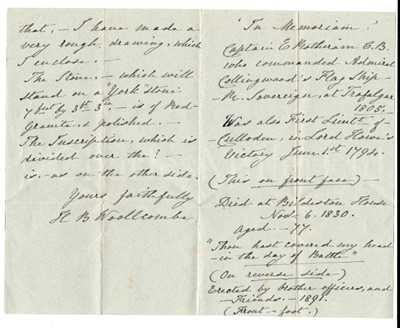 that. — I have made a
very rough drawing, which
I enclose. —
The Stone, — which will
stand on a York stone
7 feet by 3ft 3in — is of Red
Granite, & polished. —
The Inscription, which is
divided over the! —
is. as on the other side.
Yours faithfully
H B Woollcombe
'In Memoriam.'
Captain E Rotheram C.B.
who commanded Admiral
Collingwood's Flag Ship —
R. Sovereign, at Trafalgar
1805.
Was also First Lieutt. of —
Culloden, in Lord Howe's
Victory June 1st 1794.
(This on front face) —
Died at Bildeston House
Nov. 6. 1830.
Aged. — 77.
"Thou hast covered my head
— in the day of Battle"
(On reverse side)
Erected by brother officers, and
— Friends. — 189
(Front - foot.)